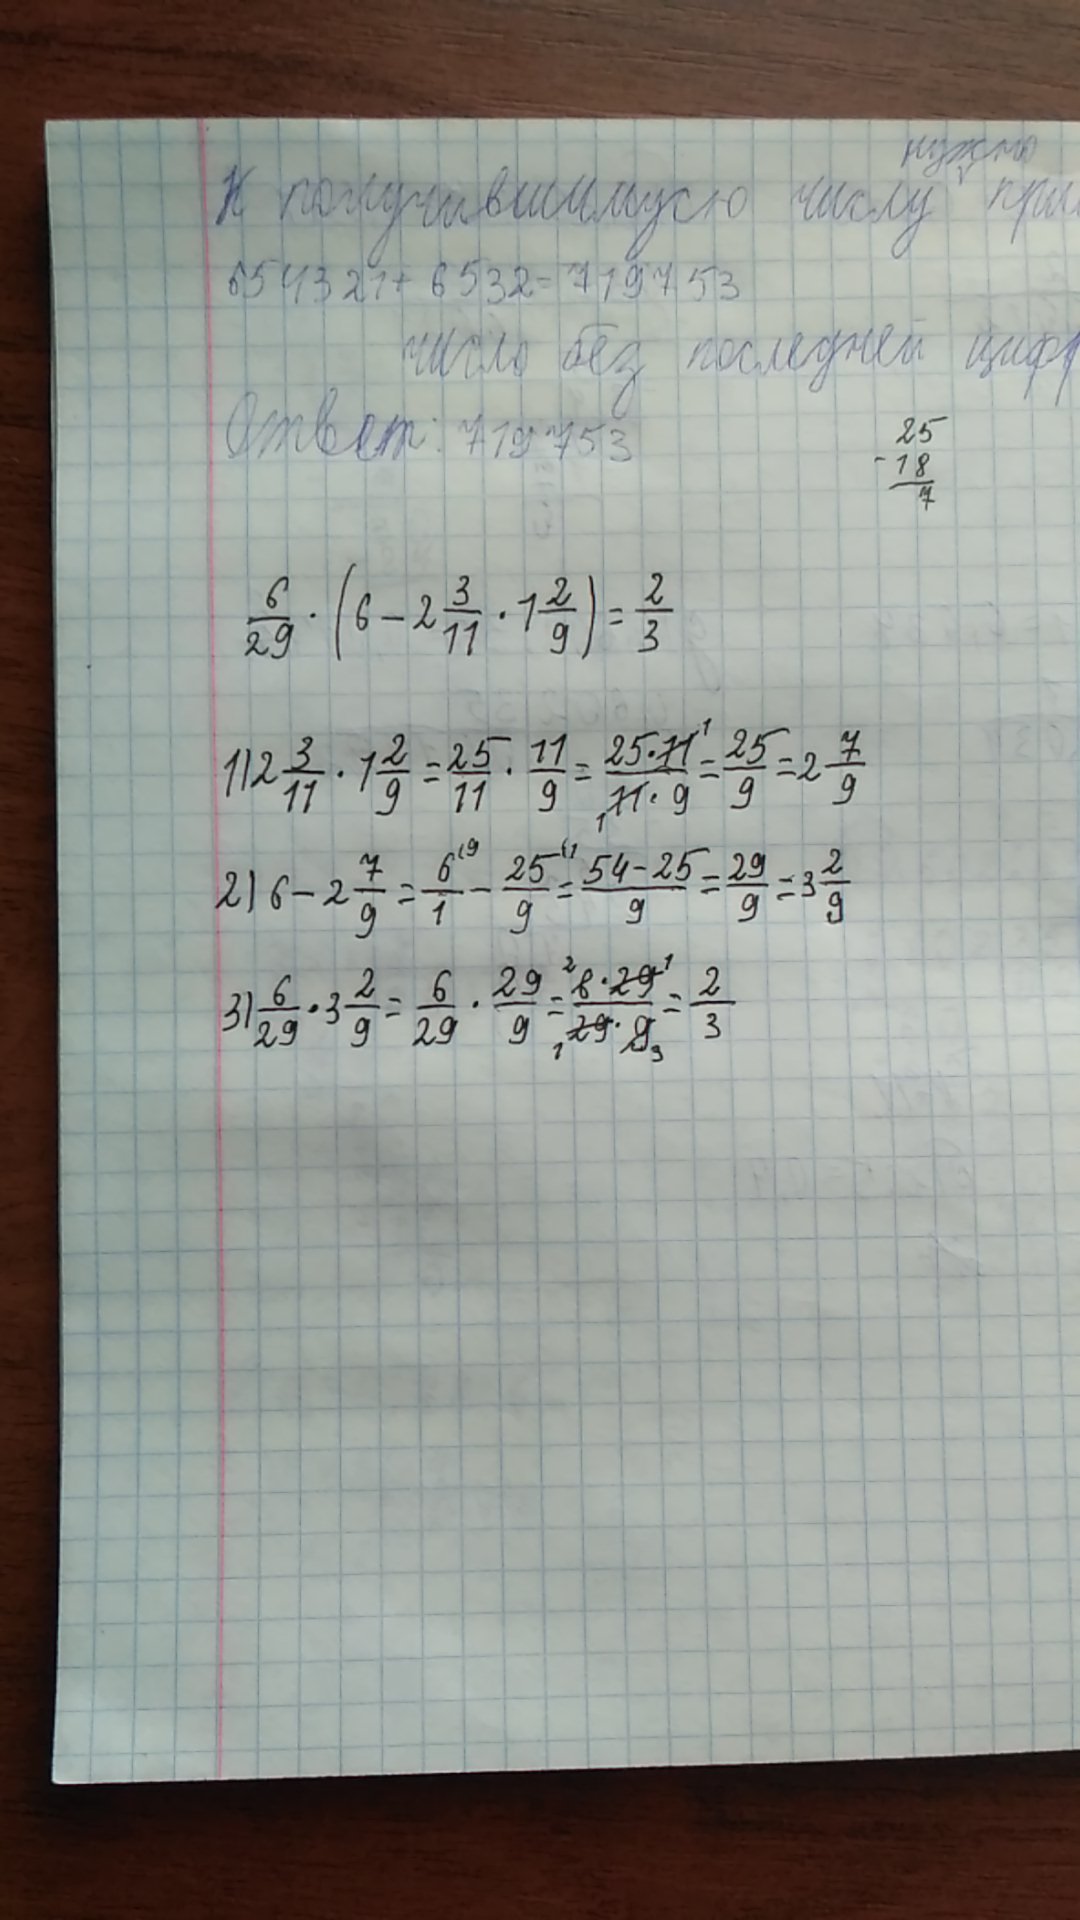 нужно
К получившимуся числу
654321+ 6532= 719753
число без последней
Ответ: 719753
25
- 18
7
6/29 · (6 - 2 3/11 · 1 2/9) = 2/3
1) 2 3/11 · 1 2/9 = 25/11 · 11/9 = 25·11/11·9 = 25/9 = 2 7/9
2) 6 - 2 7/9 = 6/1 - 25/9 = 54-25/9 = 29/9 = 3 2/9
3) 6/29 · 3 2/9 = 6/29 · 29/9 = 6·29/29·9 = 2/3